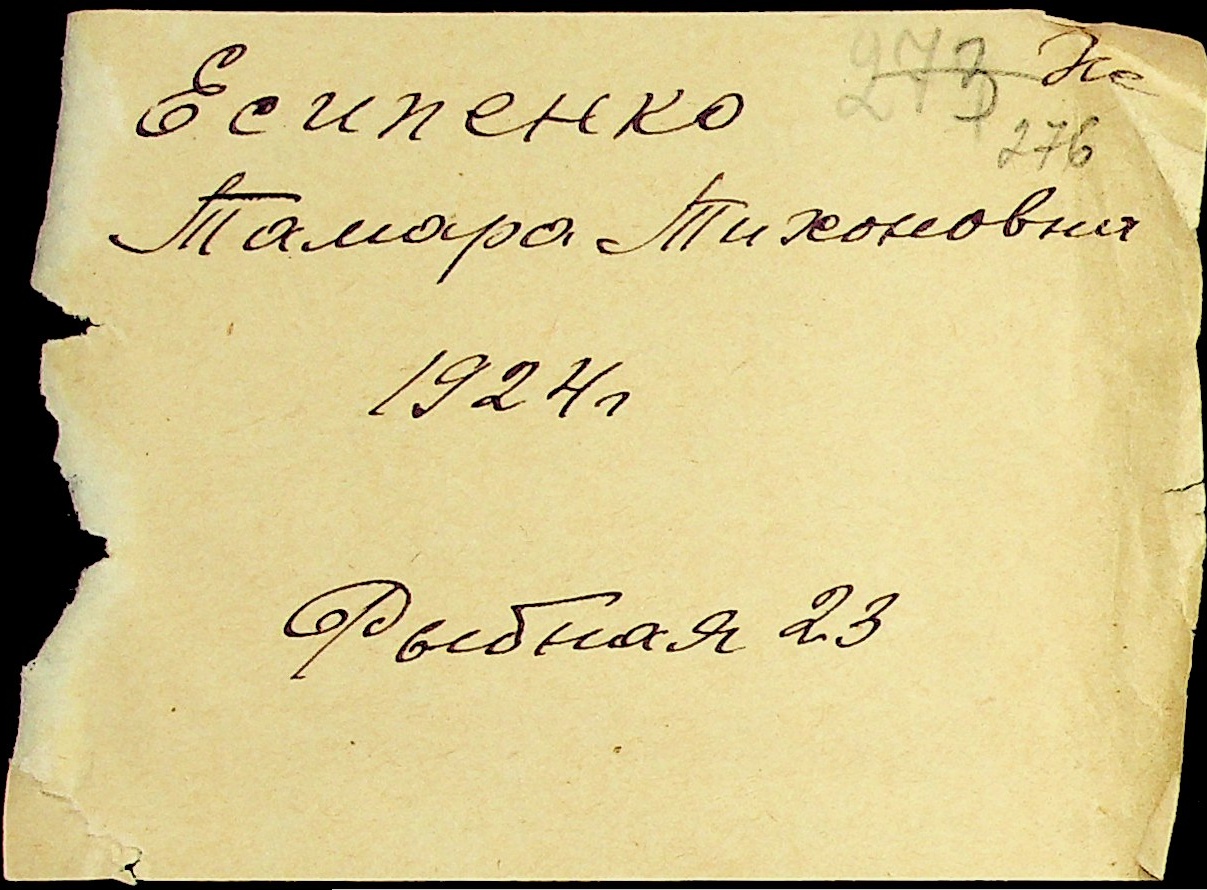 273 Не
Есипенко
276
Тамара Тихоновна
1924 г
Рыбная 23